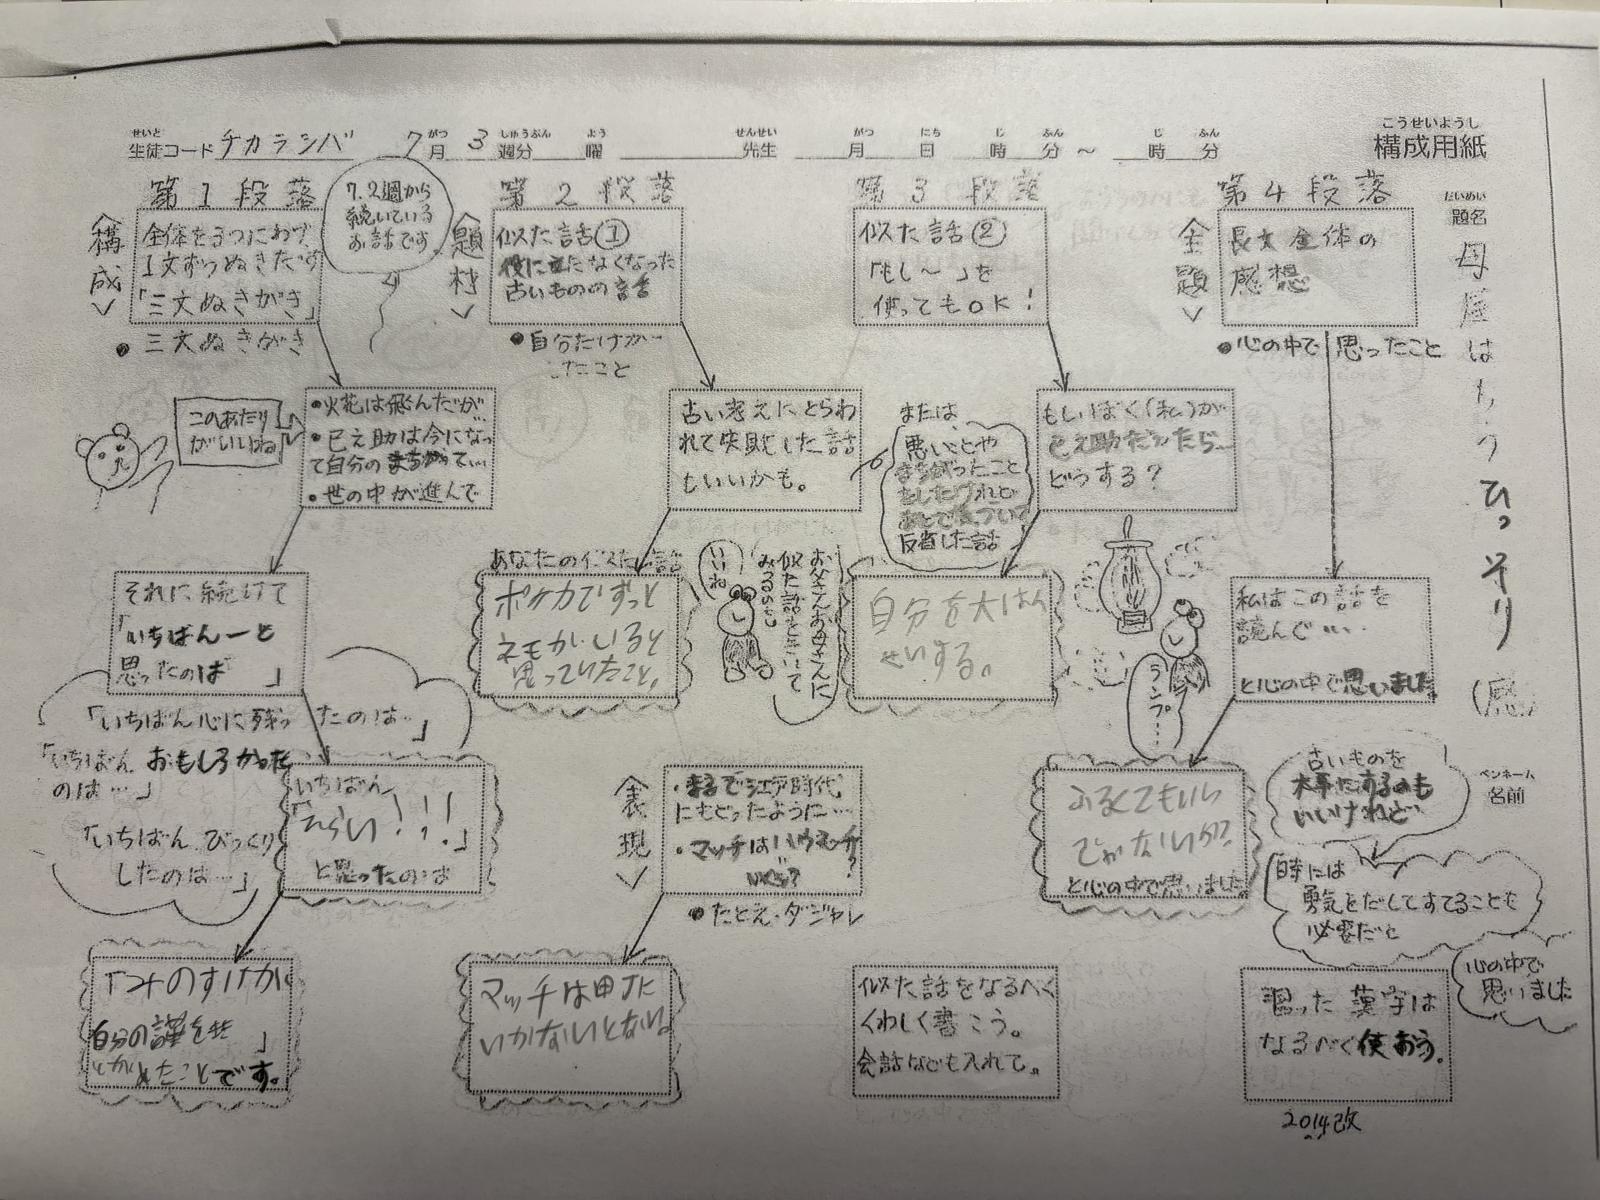 せいと
生徒コード チカラシバ 7月 3週分 曜 先生 月 日 時 分 ～ 時 分
がつ しゅうぶん よう せんせい がつ にち じ ふん じ ふん
こうせいようし
構成用紙
だいめい
題名
母屋はもうひっそり(感)
ペンネーム
名前
第1段落
＜構成＞
全体を3つにわけ
1文ずつぬきだす
「三文ぬきがき」
●三文ぬきがき
7.2週から
続いている
お話です。
このあたり
がいいね
・火花は飛んだが…
・巳之助は今になっ
て自分のまちがって…
・世の中が進んで
それに続けて
「いちばん－と
思ったのは 」
「いちばん心に残ったのは…」
「いちばんおもしろかった
のは…」
「いちばんびっくり
したのは…」
いちばん
「えらい！！！」
と思ったのは
自分の
たことです。
第2段落
＜題材＞
似た話①
役に立たなくなった
古いものの話
●自分だけが…
したこと
古い考えにとらわ
れて失敗した話
もいいかも。
あなたの似た話
ポケカでずっと
ネモがいると
思っていたこと。
いいね
お父さんお母さんに
似た話をきいて
みるのも
＜表現＞
・まるで江戸時代
にもどったように…
・マッチはハウマッチ？
いくら？
●たとえ・ダジャレ
マッチは町に
いかないとない。
第3段落
似た話②
「もし～」を
使ってもOK！
または、
悪いことや
まちがったこと
をしたけれど
あとで気づいて
反省した話
もしぼく(私)が
巳之助だったら…
どうする？
自分を大はん
せいする。
ランプ…
似た話をなるべく
くわしく書こう。
会話なども入れて。
第4段落
＜主題＞
長文全体の
感想
●心の中で思ったこと
私はこの話を
読んで……
と心の中で思いました。
ふるくてもいい
と心の中で思いました。
古いものを
大事にするのも
いいけれど…
時には
勇気をだしてすてることも
必要だと
心の中で
思いました
習った漢字は
なるべく使おう。
2014改